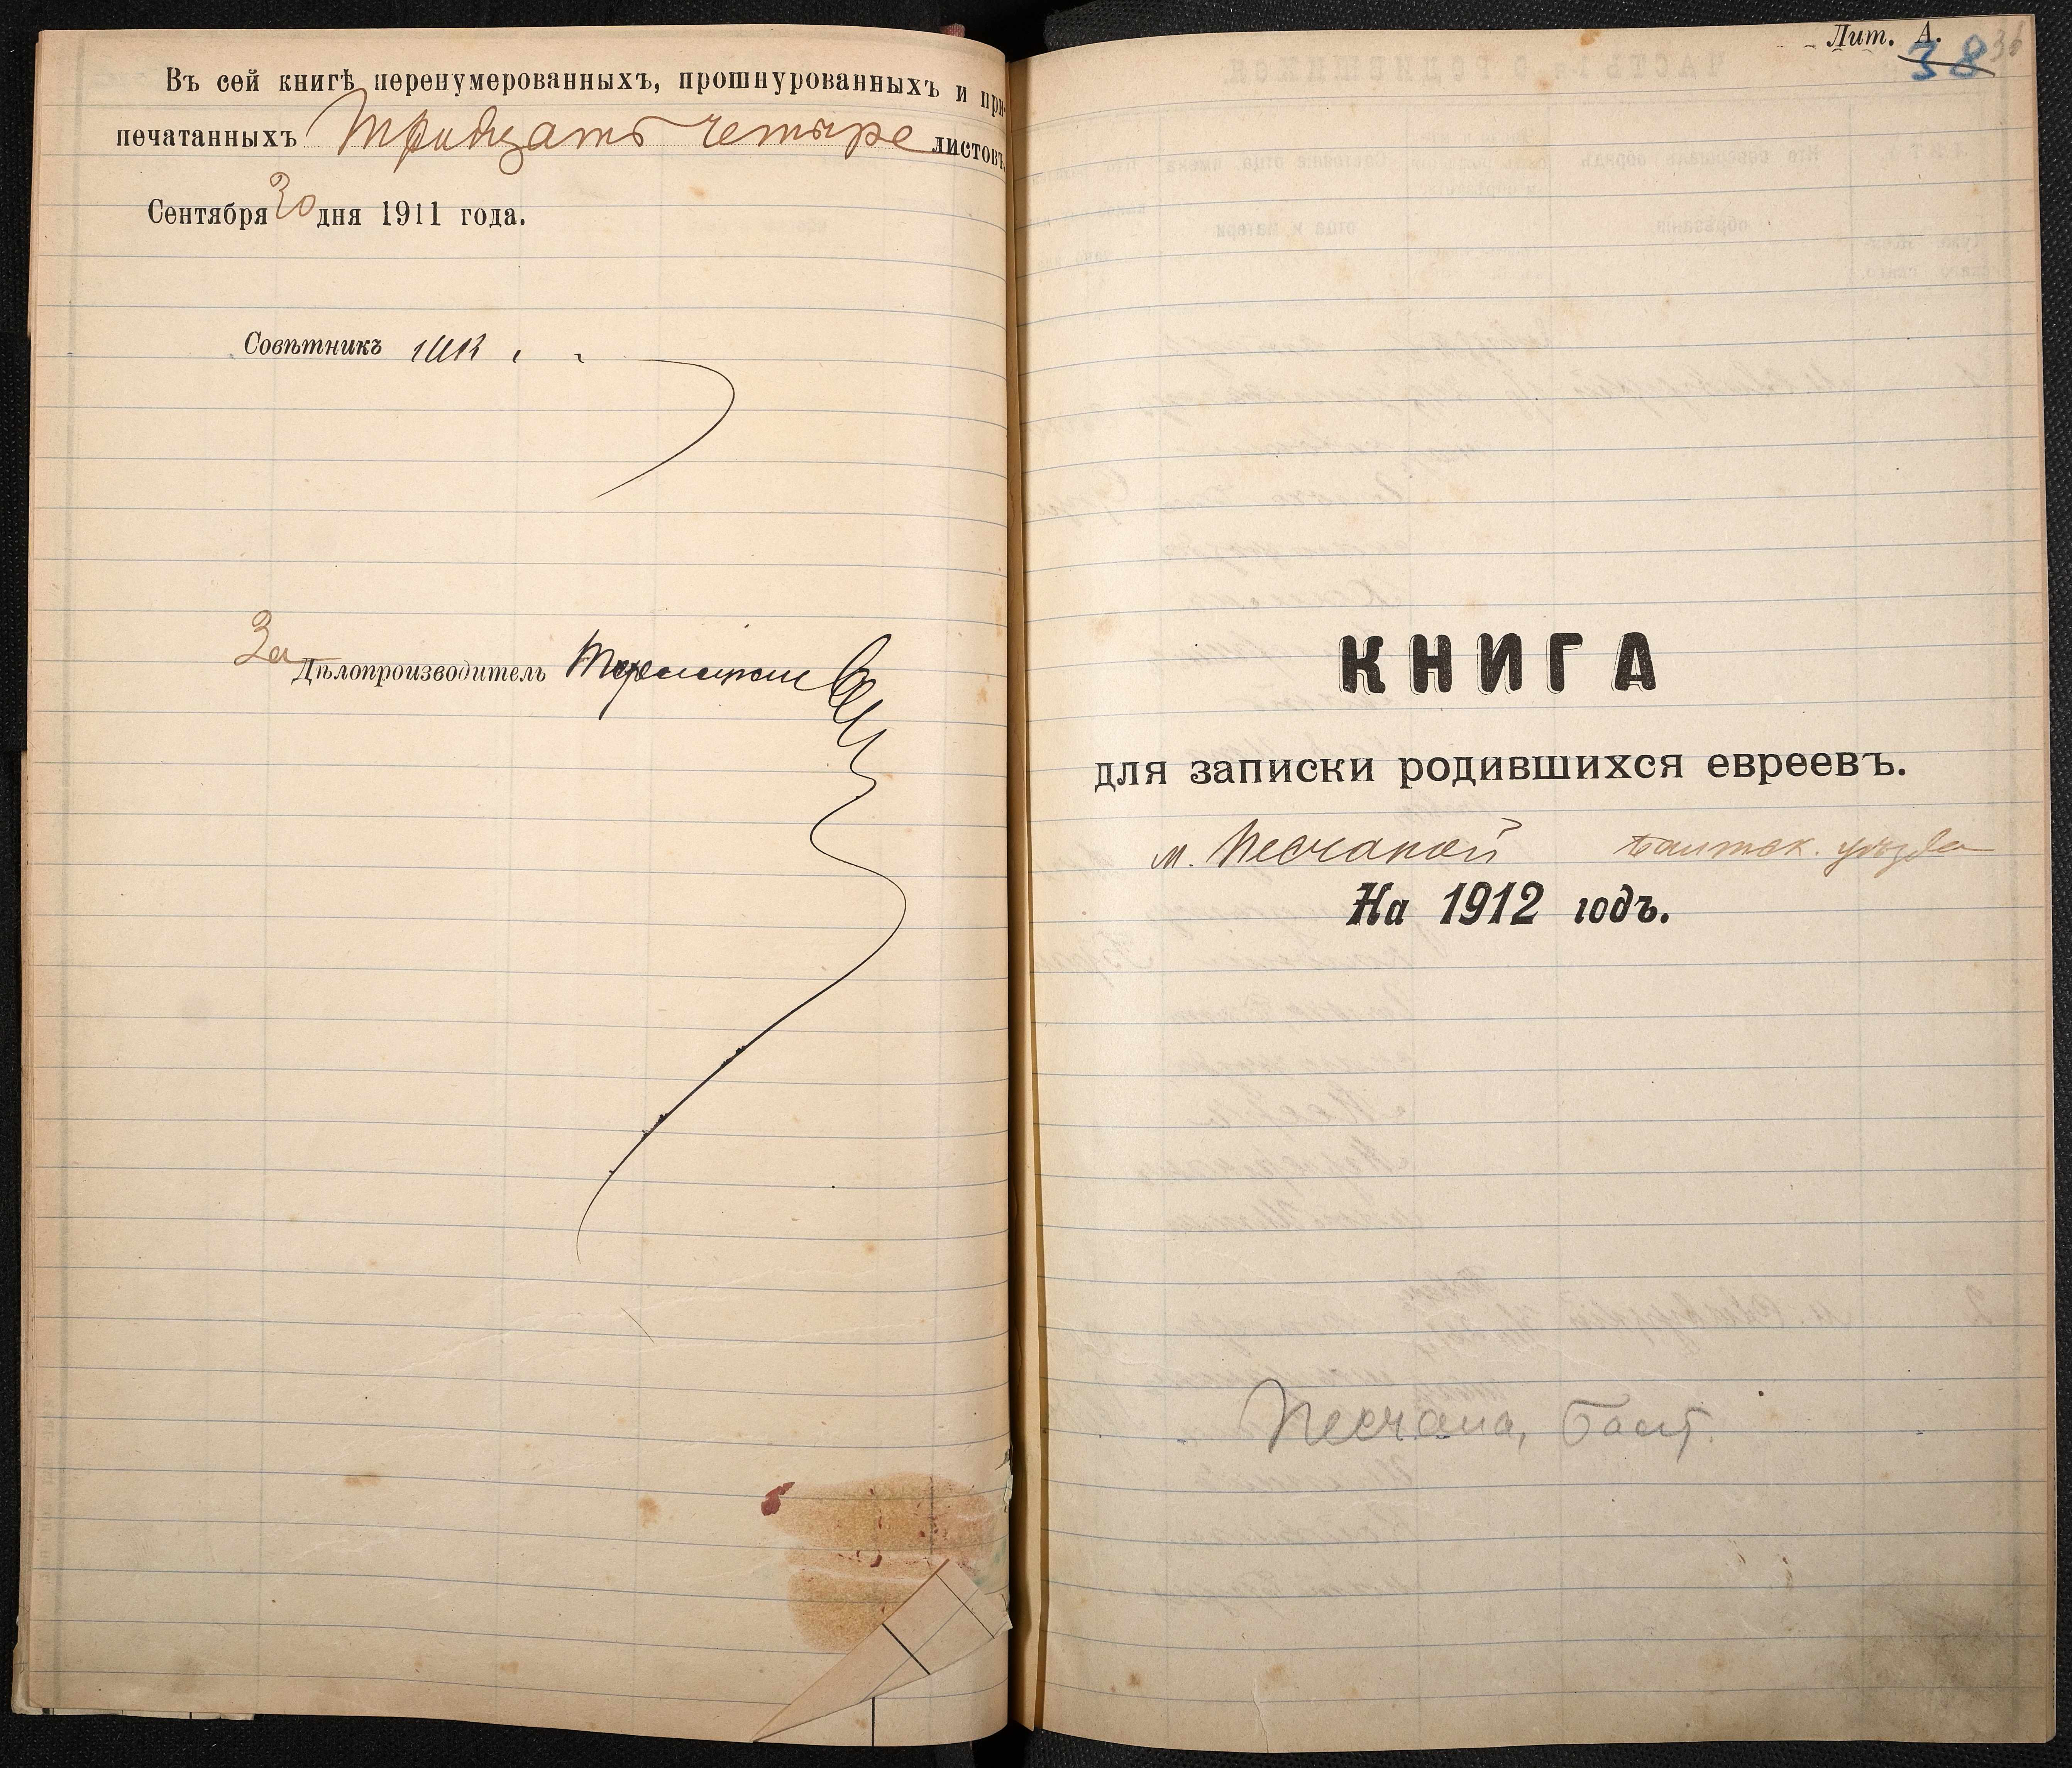 Въ сей книгѣ перенумерованныхъ, прошнурованныхъ и при-
печатанныхъ Тридцать четыре листовъ
Сентября 30 дня 1911 года.
Совѣтникъ
За Дѣлопроизводитель
Лит. А.
38 36
КНИГА
для записки родившихся евреевъ.
м. Песчаной Балтск. уѣзда
На 1912 годъ.
Песчана, Балт.